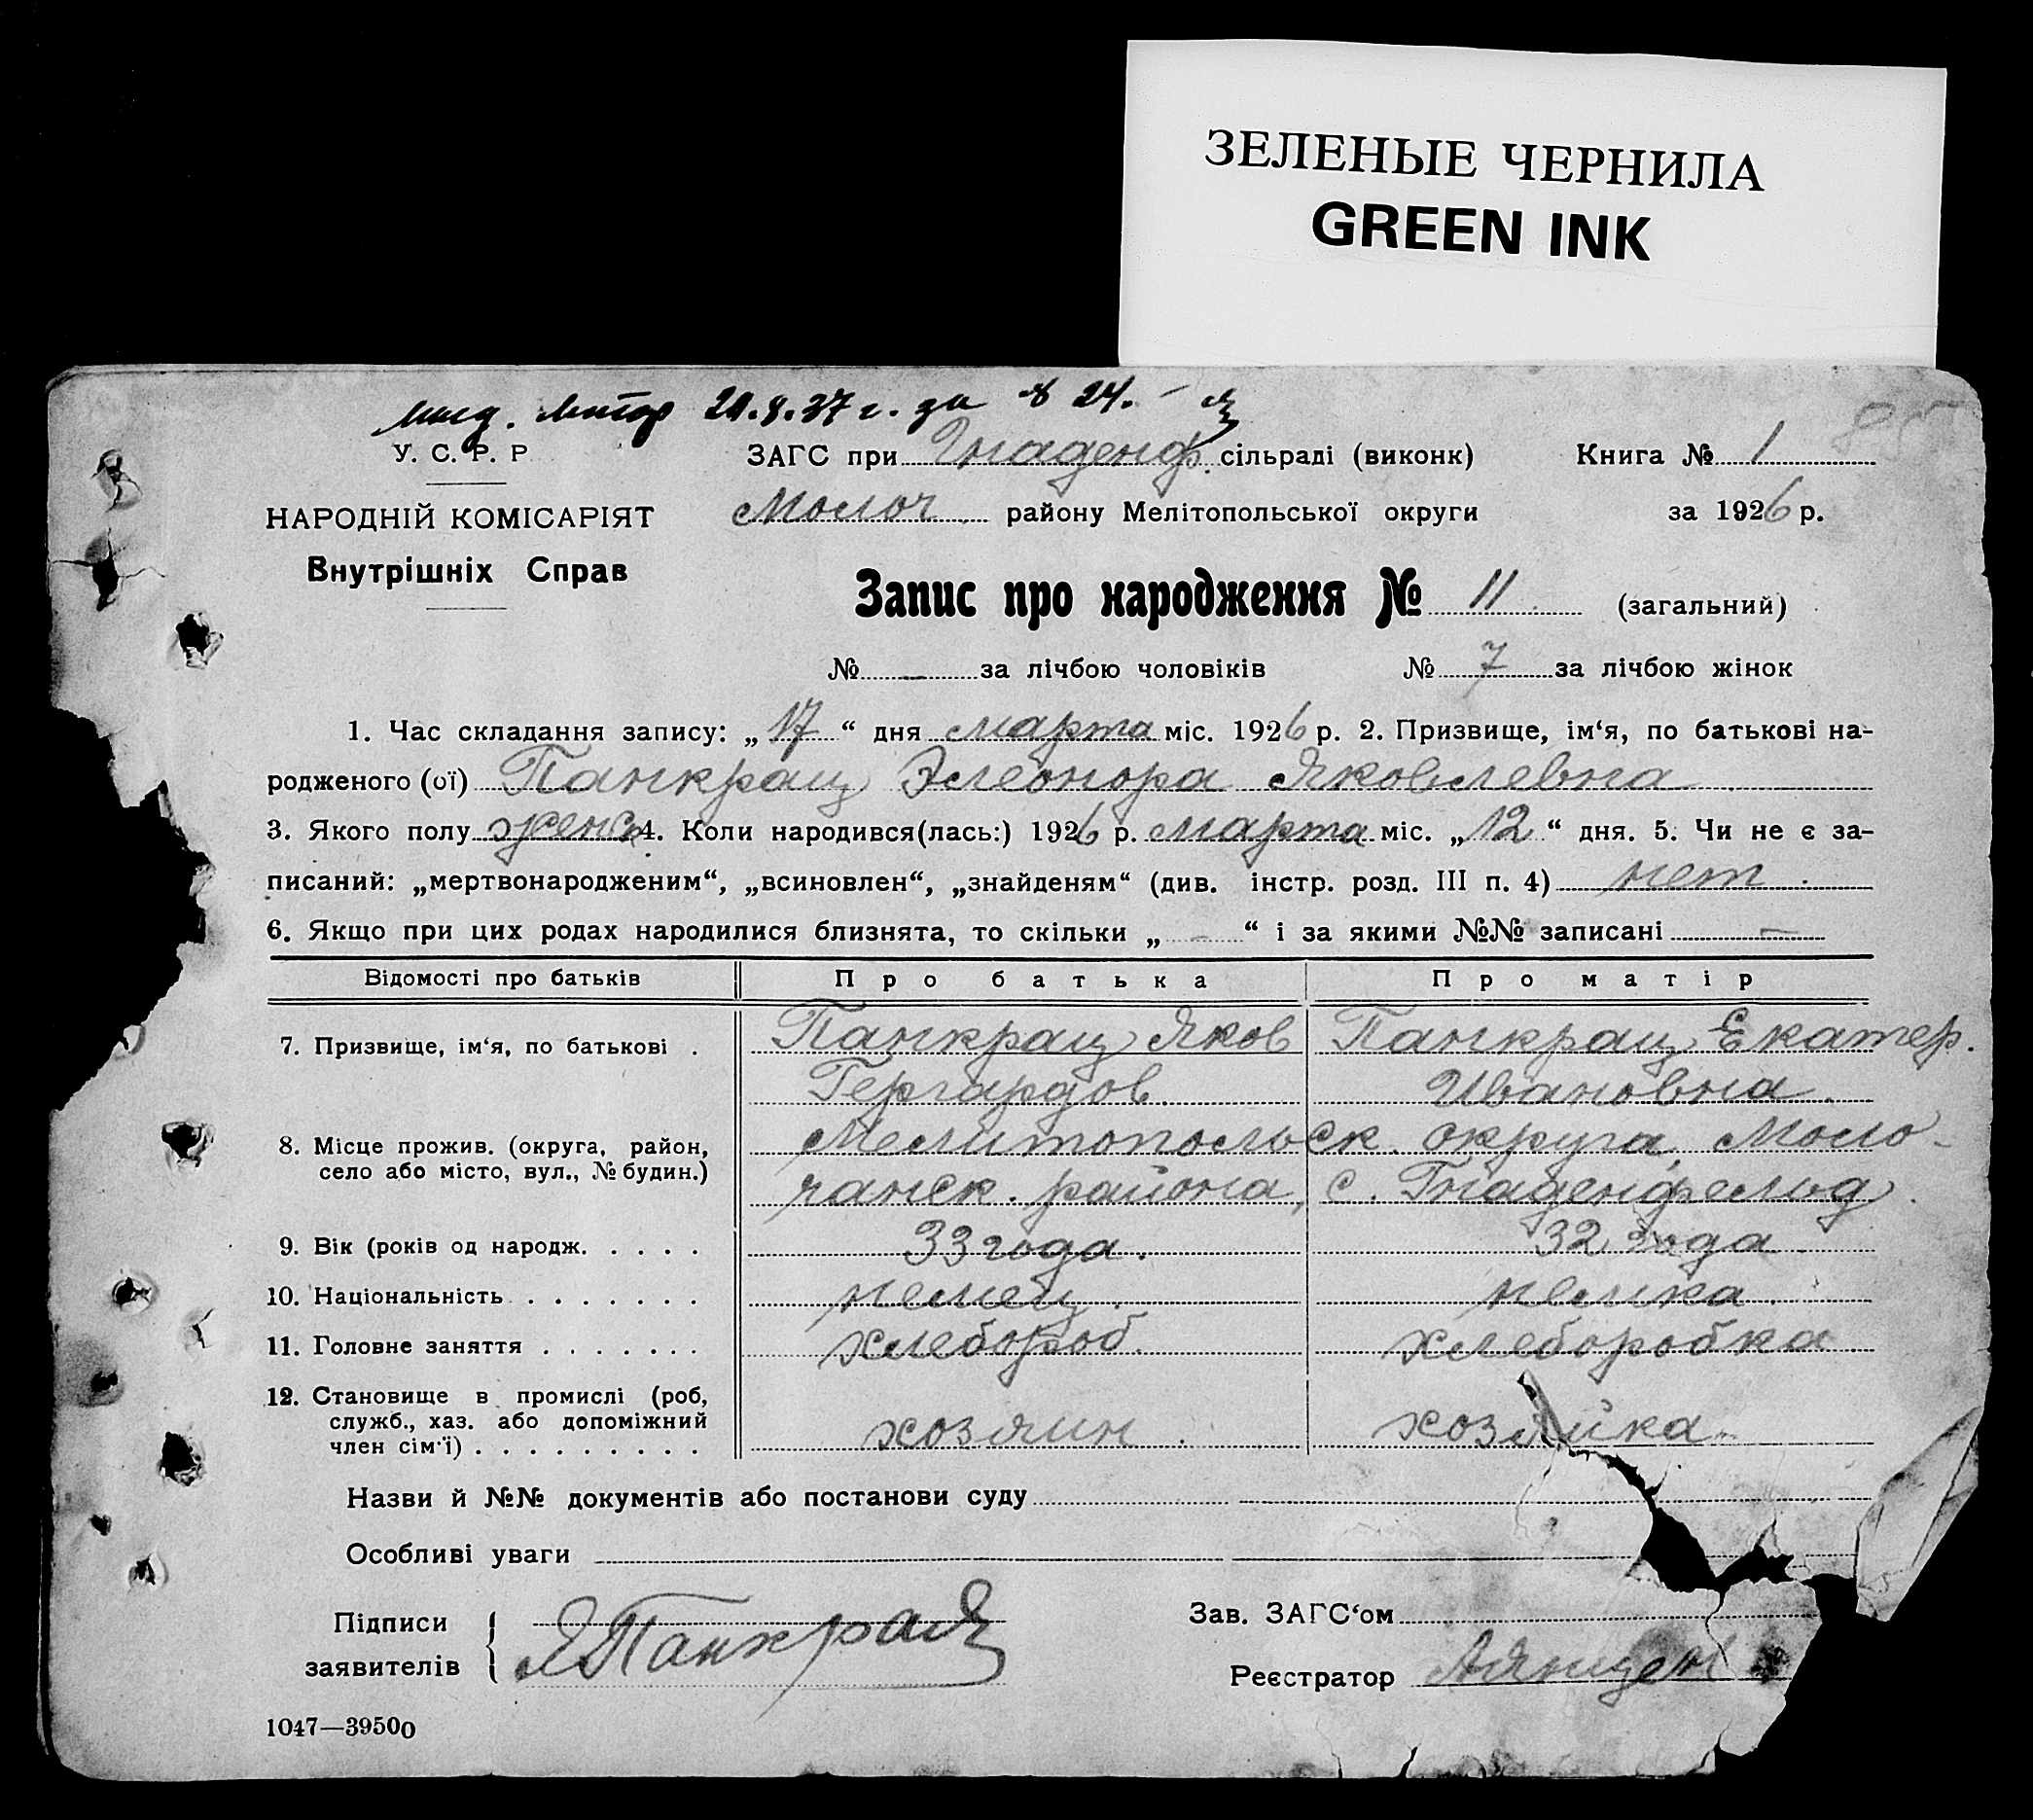 ЗЕЛЕНЫЕ ЧЕРНИЛА
GREEN INK
24. 
У. С. Р. Р
ЗАГС при Гнаденф. сільраді (виконк)
Книга № 1
НАРОДНІЙ КОМІСАРІЯТ
Молоч району Мелітопольської округи
за 1926 р.
Внутрішніх Справ
Запис про народження № 11 (загальний)
№ — за лічбою чоловіків № 7 за лічбою жінок
1. Час складання запису: „17“ дня марта міс. 1926 р. 2. Призвище, ім‘я, по батькові на-
родженого (ої) Панкрац Элеонора Яковлевна
3. Якого полу женск 4. Коли народився(лась:) 1926 р. марта міс. „12“ дня. 5. Чи не є за-
писаний: „мертвонародженим“, „всиновлен“, „знайденям“ (див. інстр. розд. III п. 4) нет.
6. Якщо при цих родах народилися близнята, то скільки „ — “ і за якими №№ записані —
Відомості про батьків Про батька Про матір
7. Призвище, ім‘я, по батькові . Панкрац Яков Панкрац Екатер.
Гергардов. Ивановна.
8. Місце прожив. (округа, район, Мелитопольск. округа, Моло-
село або місто, вул., № будин.) чанск. района, с. Гнаденфельд.
9. Вік (років од народж. . . . . 33 года. 32 года
10. Національність . . . . . . . немец. немка.
11. Головне заняття . . . . . . . хлебороб. хлеборобка
12. Становище в промислі (роб,
служб., хаз. або допоміжний хозяин. хозяйка.
член сім‘ї) . . . . . . . . .
Назви й №№ документів або постанови суду
Особливі уваги
Підписи
заявителів
Я Панкрац
Зав. ЗАГС‘ом
Реєстратор АЯнцен
1047—39500